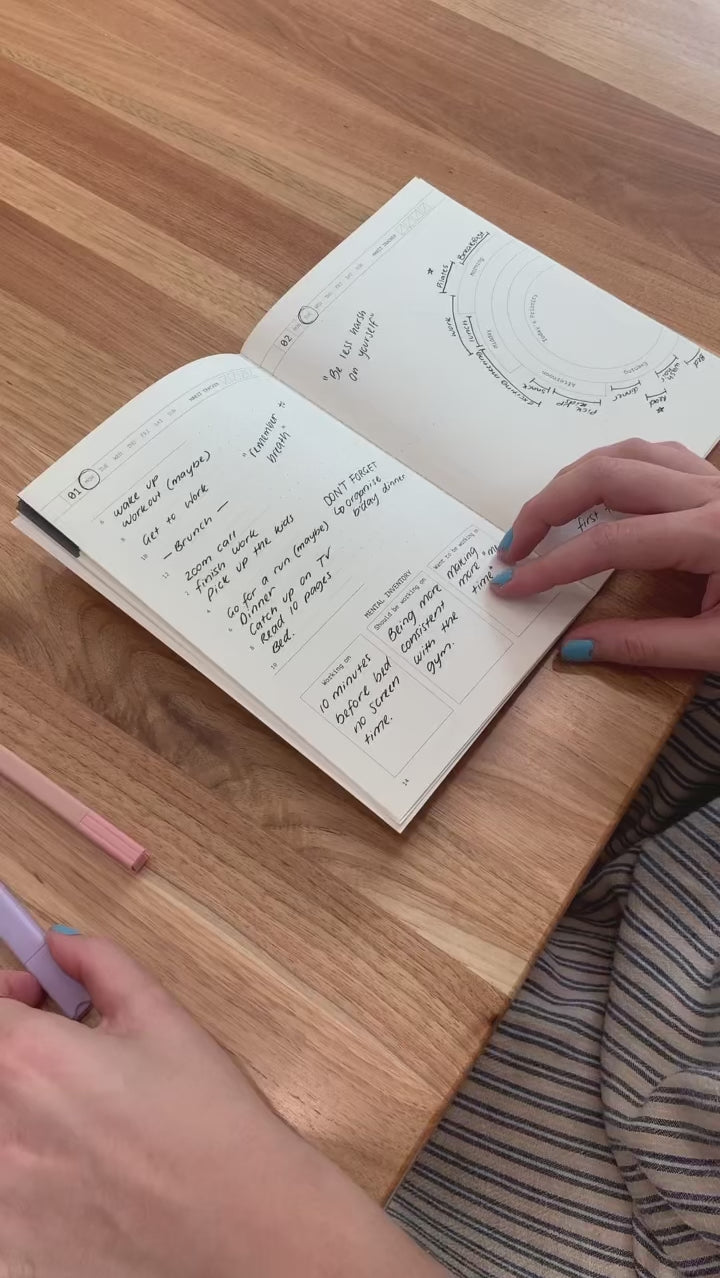 01 MON TUE WED THU FRI SAT SUN
HABIT TRACKER
6 wake up
workout (maybe)
8 Get to work
10 — Brunch —
12 zoom call
2 finish work
pick up the kids
4 Go for a run (maybe)
6 Dinner
Catch up on TV
8 Read 10 pages
Bed.
10
"remember *
breath"
DON'T FORGET
organise
b'day dinner
MENTAL INVENTORY
Working on
10 minutes
before bed
no screen
time.
Should be working on
Being more
consistent
with the
gym.
Want to be working on
making
more "me
time"
14
02 MON TUE WED THU FRI SAT SUN
HABIT TRACKER
"Be less harsh
on yourself"
*
Pilates
Breakfast
Morning
work
lunch
Midday
Afternoon
snack
Pick
kids up
Evening
dinner
Read
*
Bed
Today's Priorities
first